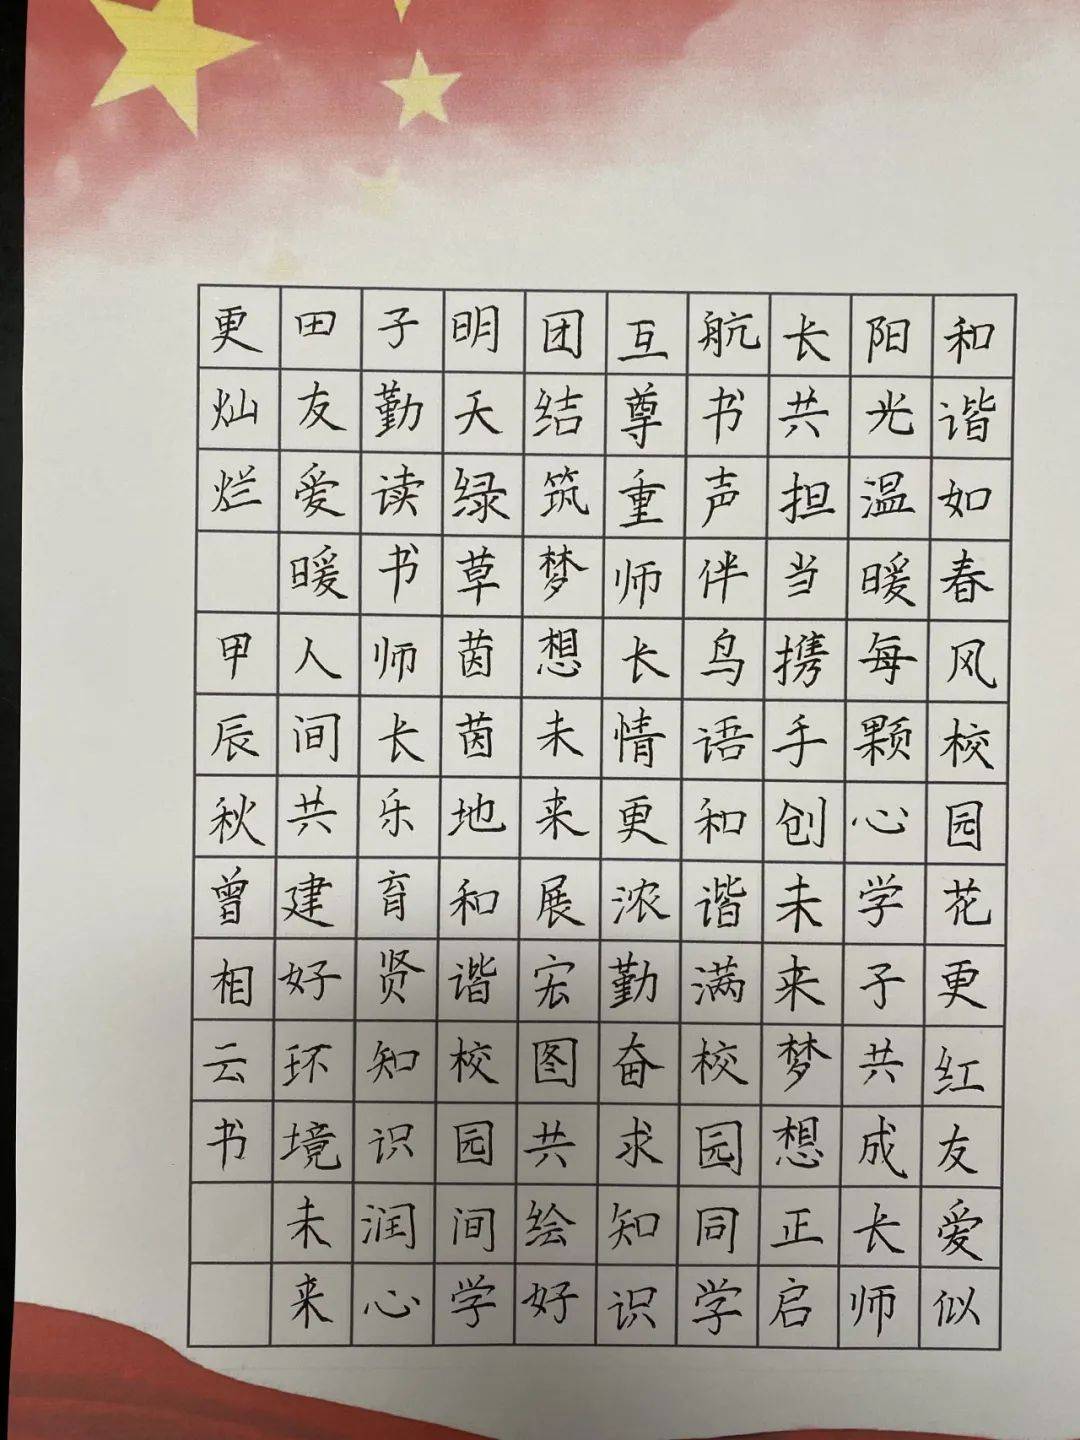 和谐如春风校园花更红友爱似
阳光温暖每颗心学子共成长师
长共担当携手创未来梦想正启
航书声伴鸟语和谐满校园同学
互尊重师长情更浓勤奋求知识
团结筑梦想未来展宏图共绘好
明天绿草茵茵地和谐校园间学
子勤读书师长乐育贤知识润心
田友爱暖人间共建好环境未来
更灿烂 甲辰秋曾相云书